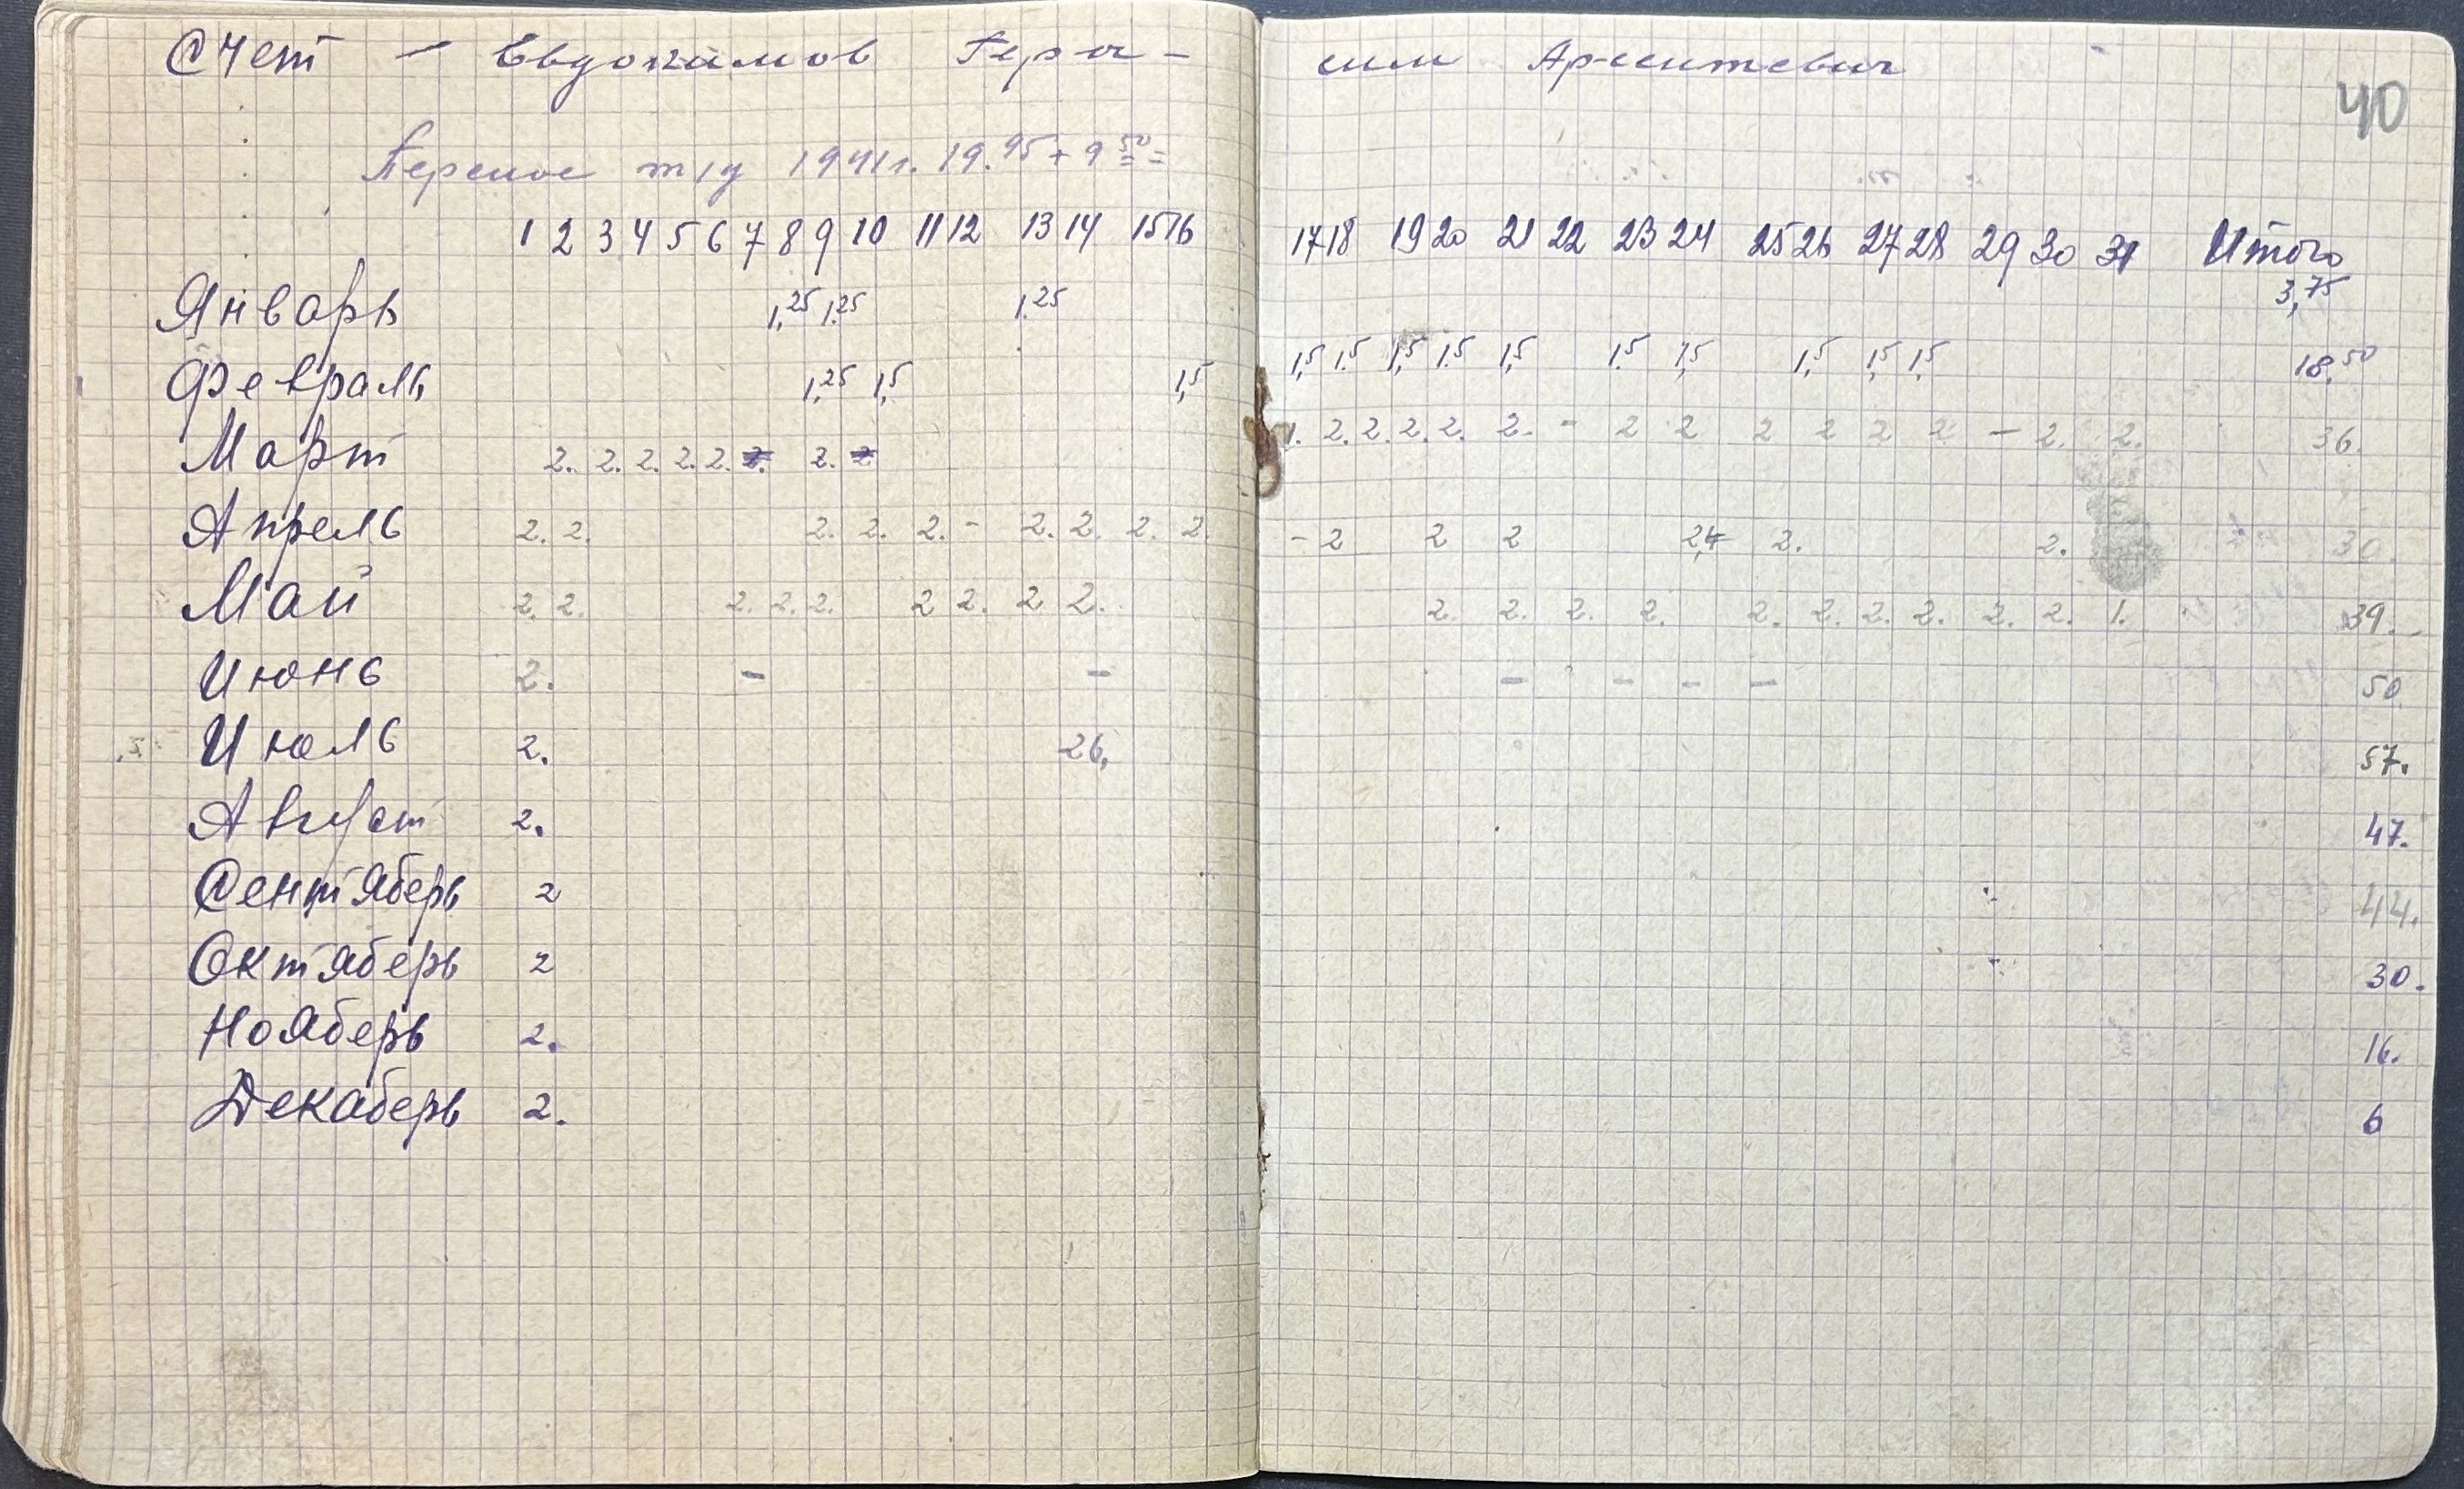 Счет – Евдокимов Гера- сим Арсентевич
40
Перенос т/д 1941г. 19.95 + 9 50 =
1 2 3 4 5 6 7 8 9 10 11 12 13 14 15 16 17 18 19 20 21 22 23 24 25 26 27 28 29 30 31 Итого
Январь 1,25 1.25 1.25 3,75
Февраль 1,25 1,5 1,5 1,5 1.5 1,5 1.5 1,5 1.5 1,5 1,5 1,5 1,5 18,50
Март 2. 2. 2. 2. 2. 2. 2. 2 1. 2. 2. 2. 2. 2. - 2 2 2 2 2 2 – 2. 2. 36.
Апрель 2. 2. 2. 2. 2. - 2. 2. 2. 2. - 2 2 2 2. 2. 30.
Май 2. 2. 2. 2. 2. 2 2. 2 2. 2. 2. 2. 2. 2. 2. 2. 2. 2. 2. 1. 39.
Июнь 2. – – – – – – 50.
Июль 2. 26, 57.
Август 2. 47.
Сентяберь 2 44.
Октяберь 2 30.
Нояберь 2. 16.
Декаберь 2. 6